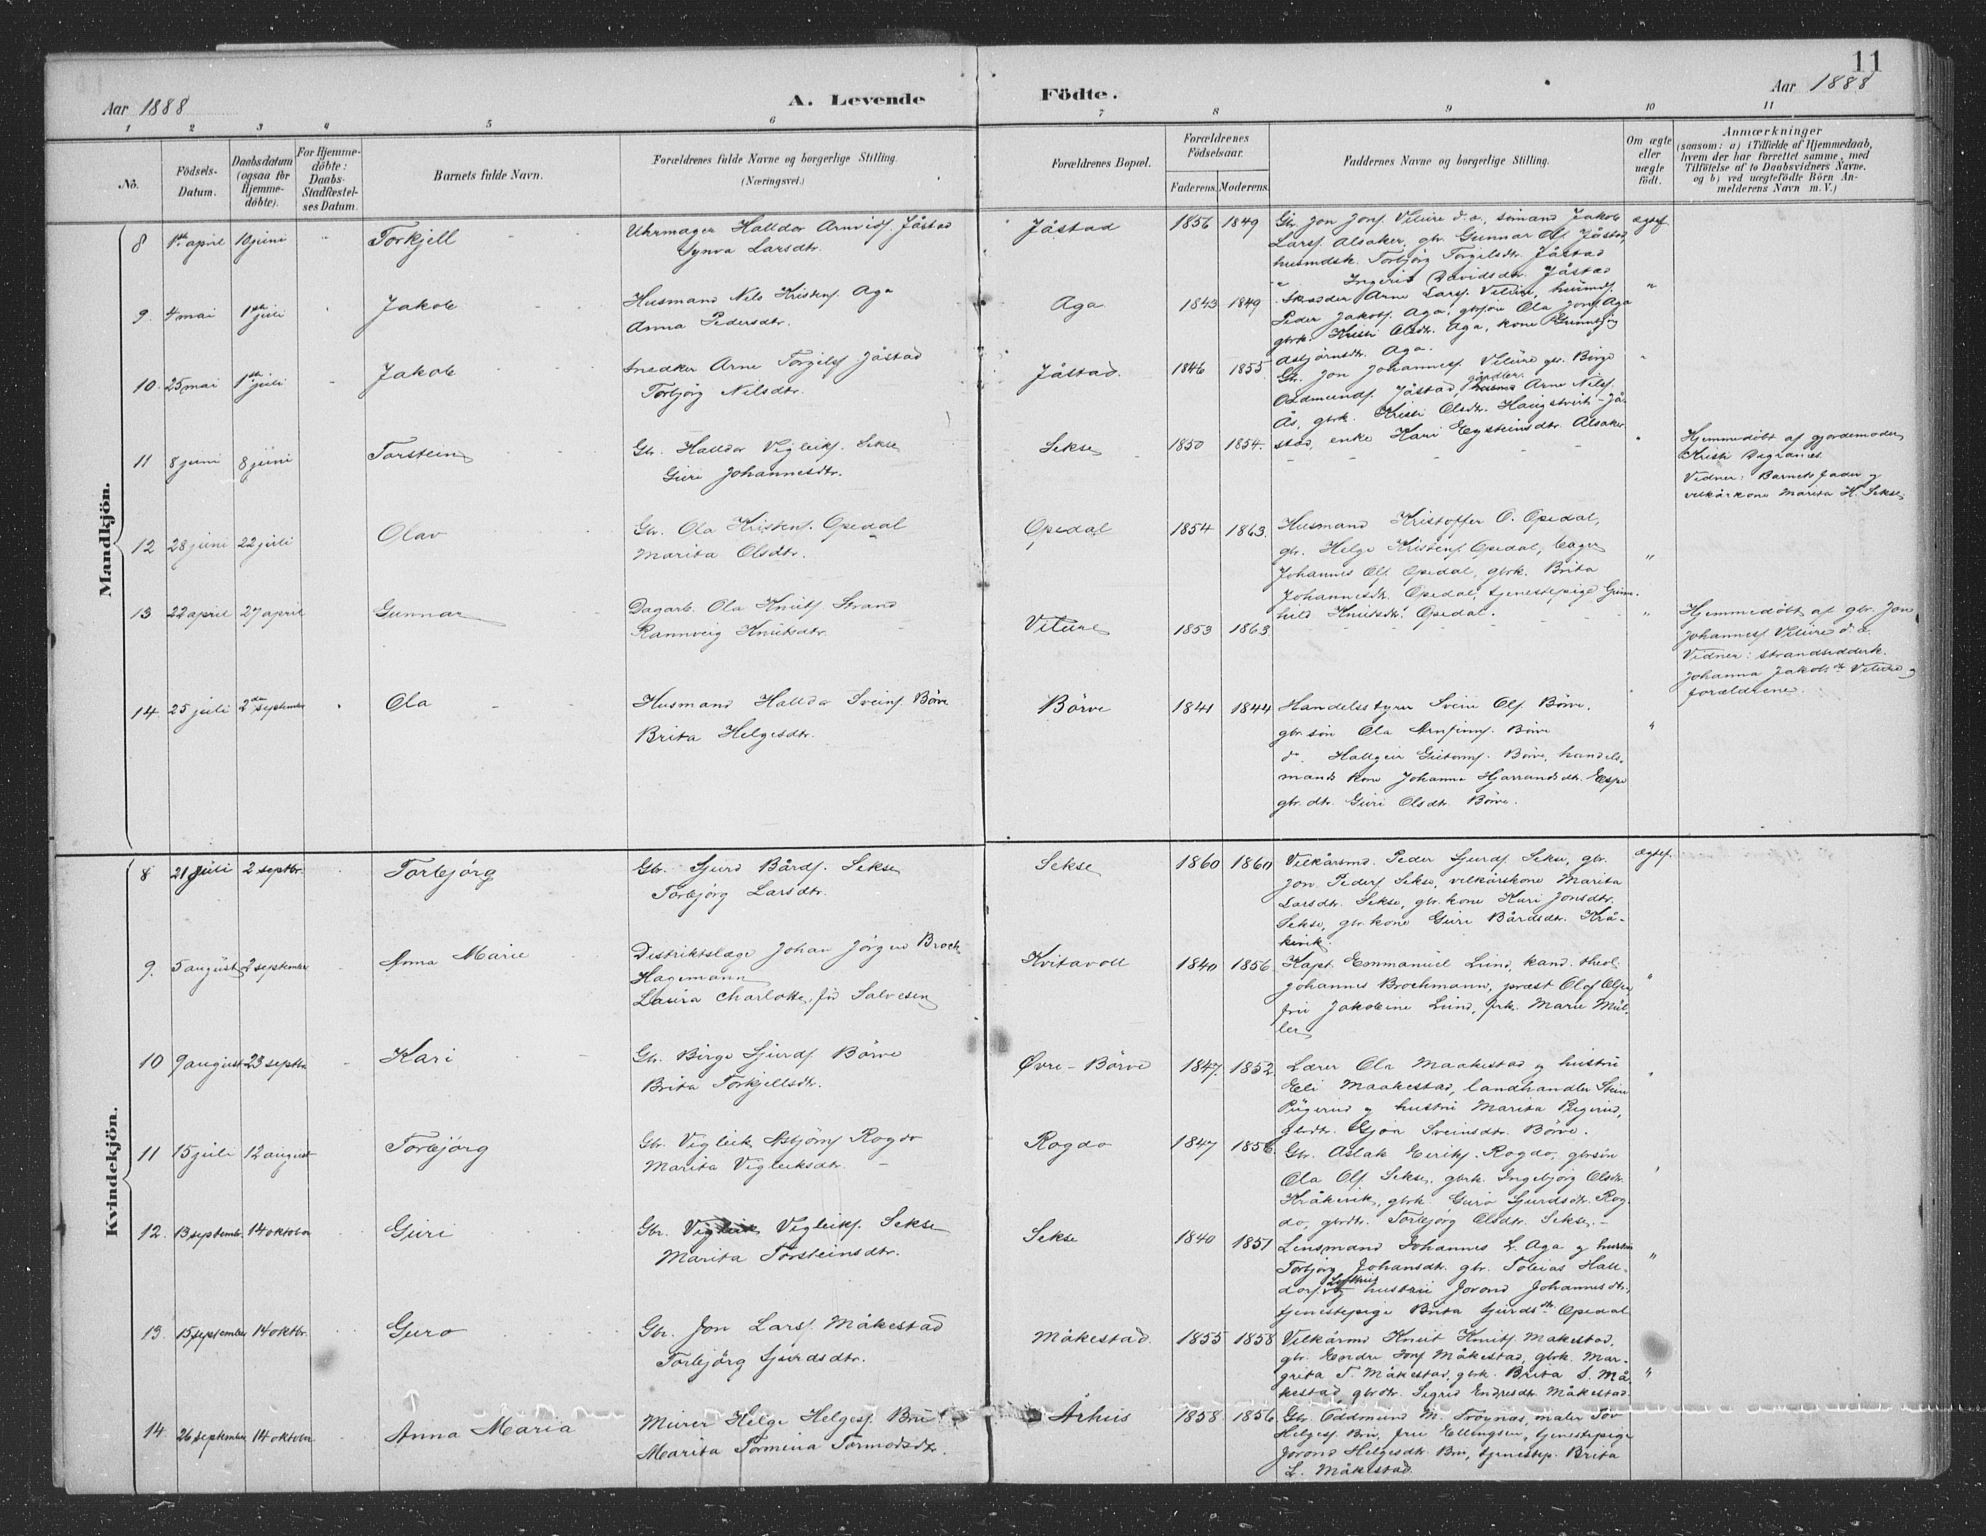 11
Aar 1888
A. Levende
Födte.
Aar 1888
1 2 3 4 5 6 7 8 9 10 11
No.
Födsels-
Datum.
Daabsdatum
(ogsaa for
Hjemme-
döbte).
For Hjemme-
döbte:
Daabs-
Stadfæstel-
ses Datum.
Barnets fulde Navn.
Forældrenes fulde Navne og borgerlige Stilling.
(Næringsvei.)
Forældrenes Bopæl.
Forældrenes
Födselsaar.
Faderens.
Moderens.
Faddernes Navne og borgerlige Stilling.
Om ægte
eller
uægte
födt.
Anmærkninger
(saasom: a) i Tilfælde af Hjemmedaab,
hvem der har forrettet samme, med
Tilföielse af to Daabsvidners Navne,
og b) ved uægtefödte Börn An-
melderens Navn m. V.)
Mandkjön.
8 1ste april 10 juni Torkjell
Uhrmager Halldor Arnvids. Jåstad
Synva Larsdtr.
Jåstad 1856 1849
Gbr. Jon Jons. Velure d.æ., sömand Jakob
Lars. Alsaker, gbr. Gunnar Ol. Jåstad,
husmdsk. Torbjörg Torgilsdtr. Jåstad
" Ingerid Davidsdtr. Jåstad
ægtef.
9. 4 mai 1ste juli Jakob
Husmand Nils Kristens. Aga
Anna Pedersdtr.
Aga 1843 1849
Skræder Arne Lars. Velure, husmd.
Peder Jakobs. Aga, gbrsön Ola Jons. Aga
gbrk. Kristi Olsdtr. Aga, kone Gunnbjörg
Asbjörnsdtr. Aga.
"
10. 25 mai 1ste juli Jakob
Snedker Arne Torgils. Jåstad
Torbjörg Nilsdtr.
Jåstad. 1846 1855
Gbr. Jon Johannes. Velure gbr. Börge
Oddmunds. Jåstad, Arne Nils.
Ås, gbrk. Kristi Olsdtr. Haugstveit-Jå-
stad, enke Kari Eysteinsdtr. Alsaker
"
11 8 juni 8 juni Torstein
Gbr. Halldor Vigleiks. Sekse
Guri Johannesdtr.
Sekse 1850 1854.
"
Hjemmedöbt af gjordemoder
Kristi Degranæs.
Vidner: Barnets fader og
vilkårkone Marita H. Sekse
12 28 juni 22 juli Olav
Gbr. Ola Kristens. Opedal
Marita Olsdtr.
Opedal 1854 1863.
Husmand Kristoffer O. Opedal,
gbr. Helge Kristens. Opedal, bager
Johannes Ols. Opedal, gbrk. Brita
Johannesdtr. Opedal, tjenestepige Gunn-
hild Knutsdtr. Opedal.
"
13 22 april 27 april Gunnar
Dagarb. Ola Knuts. Strand
Rannveig Knutsdtr.
Velure 1853 1863.
"
Hjemmedöbt af gbr. Jon
Johannes. Velure d.æ.
Vidner: strandsidderk.
Johanna Jakobsdtr Velure og
forældrene.
14 25 juli 2den september Ola
Husmand Halldor Sveins. Börve
Brita Helgesdtr.
Börve 1841 1844
Handelsstyrer Svein Ols. Börve,
gbrsön Ola Arnfinns. Börve
d. Hallgeir Guttorms. Börve, handels-
mands kone Johanna Hjarrandsdtr. Espe
gbr.dtr. Guri Olsdtr. Börve.
"
Kvindekjön.
8 21 juli 2 septbr. Torbjörg
Gbr. Sjurd Bårds. Sekse
Torbjörg Larsdtr.
Sekse 1860 1860
Vilkårsmd. Peder Sjurds. Sekse, gbr.
Jon Peders. Sekse, vilkårskone Marita
Larsdtr. Sekse, gbr. kone Kari Jonsdtr.
Sekse, gbr. kone Guri Bårdsdtr. Krå-
kevik.
ægtef.
9. 5 august 2 september Anna Marie
Distriktslæge Johan Jörgen Broch
Hagemann
Laura Charlotte, föd Salvesen
Kvitavoll 1840 1856.
Kapt. Emmanuel Lund, kand. theol.
Johannes Brochmann, præst Olaf Olsen
fru Jakobine Lund, frk. Marie Mül-
ler
"
10 9 august 23 septbr Kari
Gbr. Börge Sjurds. Börve
Brita Torkjellsdtr.
Øvre-Börve 1847. 1852
Lærer Ola Maakestad og hustru
Eli Maakestad, landhandler Svein
Pügerud og hustru Marita Pügerud,
gbrdtr. Gjöa Sveinsdtr. Börve.
"
11 15 juli 12 august Torbjörg
Gbr. Vigleik Asbjörns. Rogdo
Marita Vigleiksdtr.
Rogdo 1847 1856.
Gbr. Aslak Eiriks. Rogdo, gbrsön
Ola Ols. Sekse, gbrk. Ingebjörg Olsdtr.
Kråkevik, gbrk. Guro Sjurdsdtr. Rog-
do, gbrdtr. Torbjörg Olsdtr. Sekse.
12. 13 septemb. 14 oktober Guri
Gbr. Vigleik Vigleiks. Sekse
Marita Torsteinsdtr.
Sekse 1840 1851
Lensmand Johannes L. Aga og hustru
Torbjörg Johansdtr. gbr. Tobias Hall-
dors. Lofthus og hustru Jorond Johannesdtr.
tjenestepige Brita Sjurdsdtr Opedal
"
13. 15 september 14 oktbr. Guro
Gbr. Jon Lars. Måkestad
Torbjörg Sjurdsdtr.
Måkestad. 1855 1858
Vilkårmd Knut Knuts. Måkestad,
gbr. Endre Jons. Måkestad, gbrk. Mar-
grita T. Måkestad, gbrk. Brita S. Må-
kestad, gbrdtr. Sigrid Endresdtr Måkestad.
"
14. 26 september 14 oktober Anna Maria
Murer Helge Helges. Bru
Marita Tormina Tormodsdtr.
Århus 1858. 1856
Gbr. Oddmund M. Tröynas, maler Tor
Helges. Bru, fru Ellingsen, tjenestepige
Jorond Helgesdtr. Bru, tjenestep. Brita
L. Måkestad.